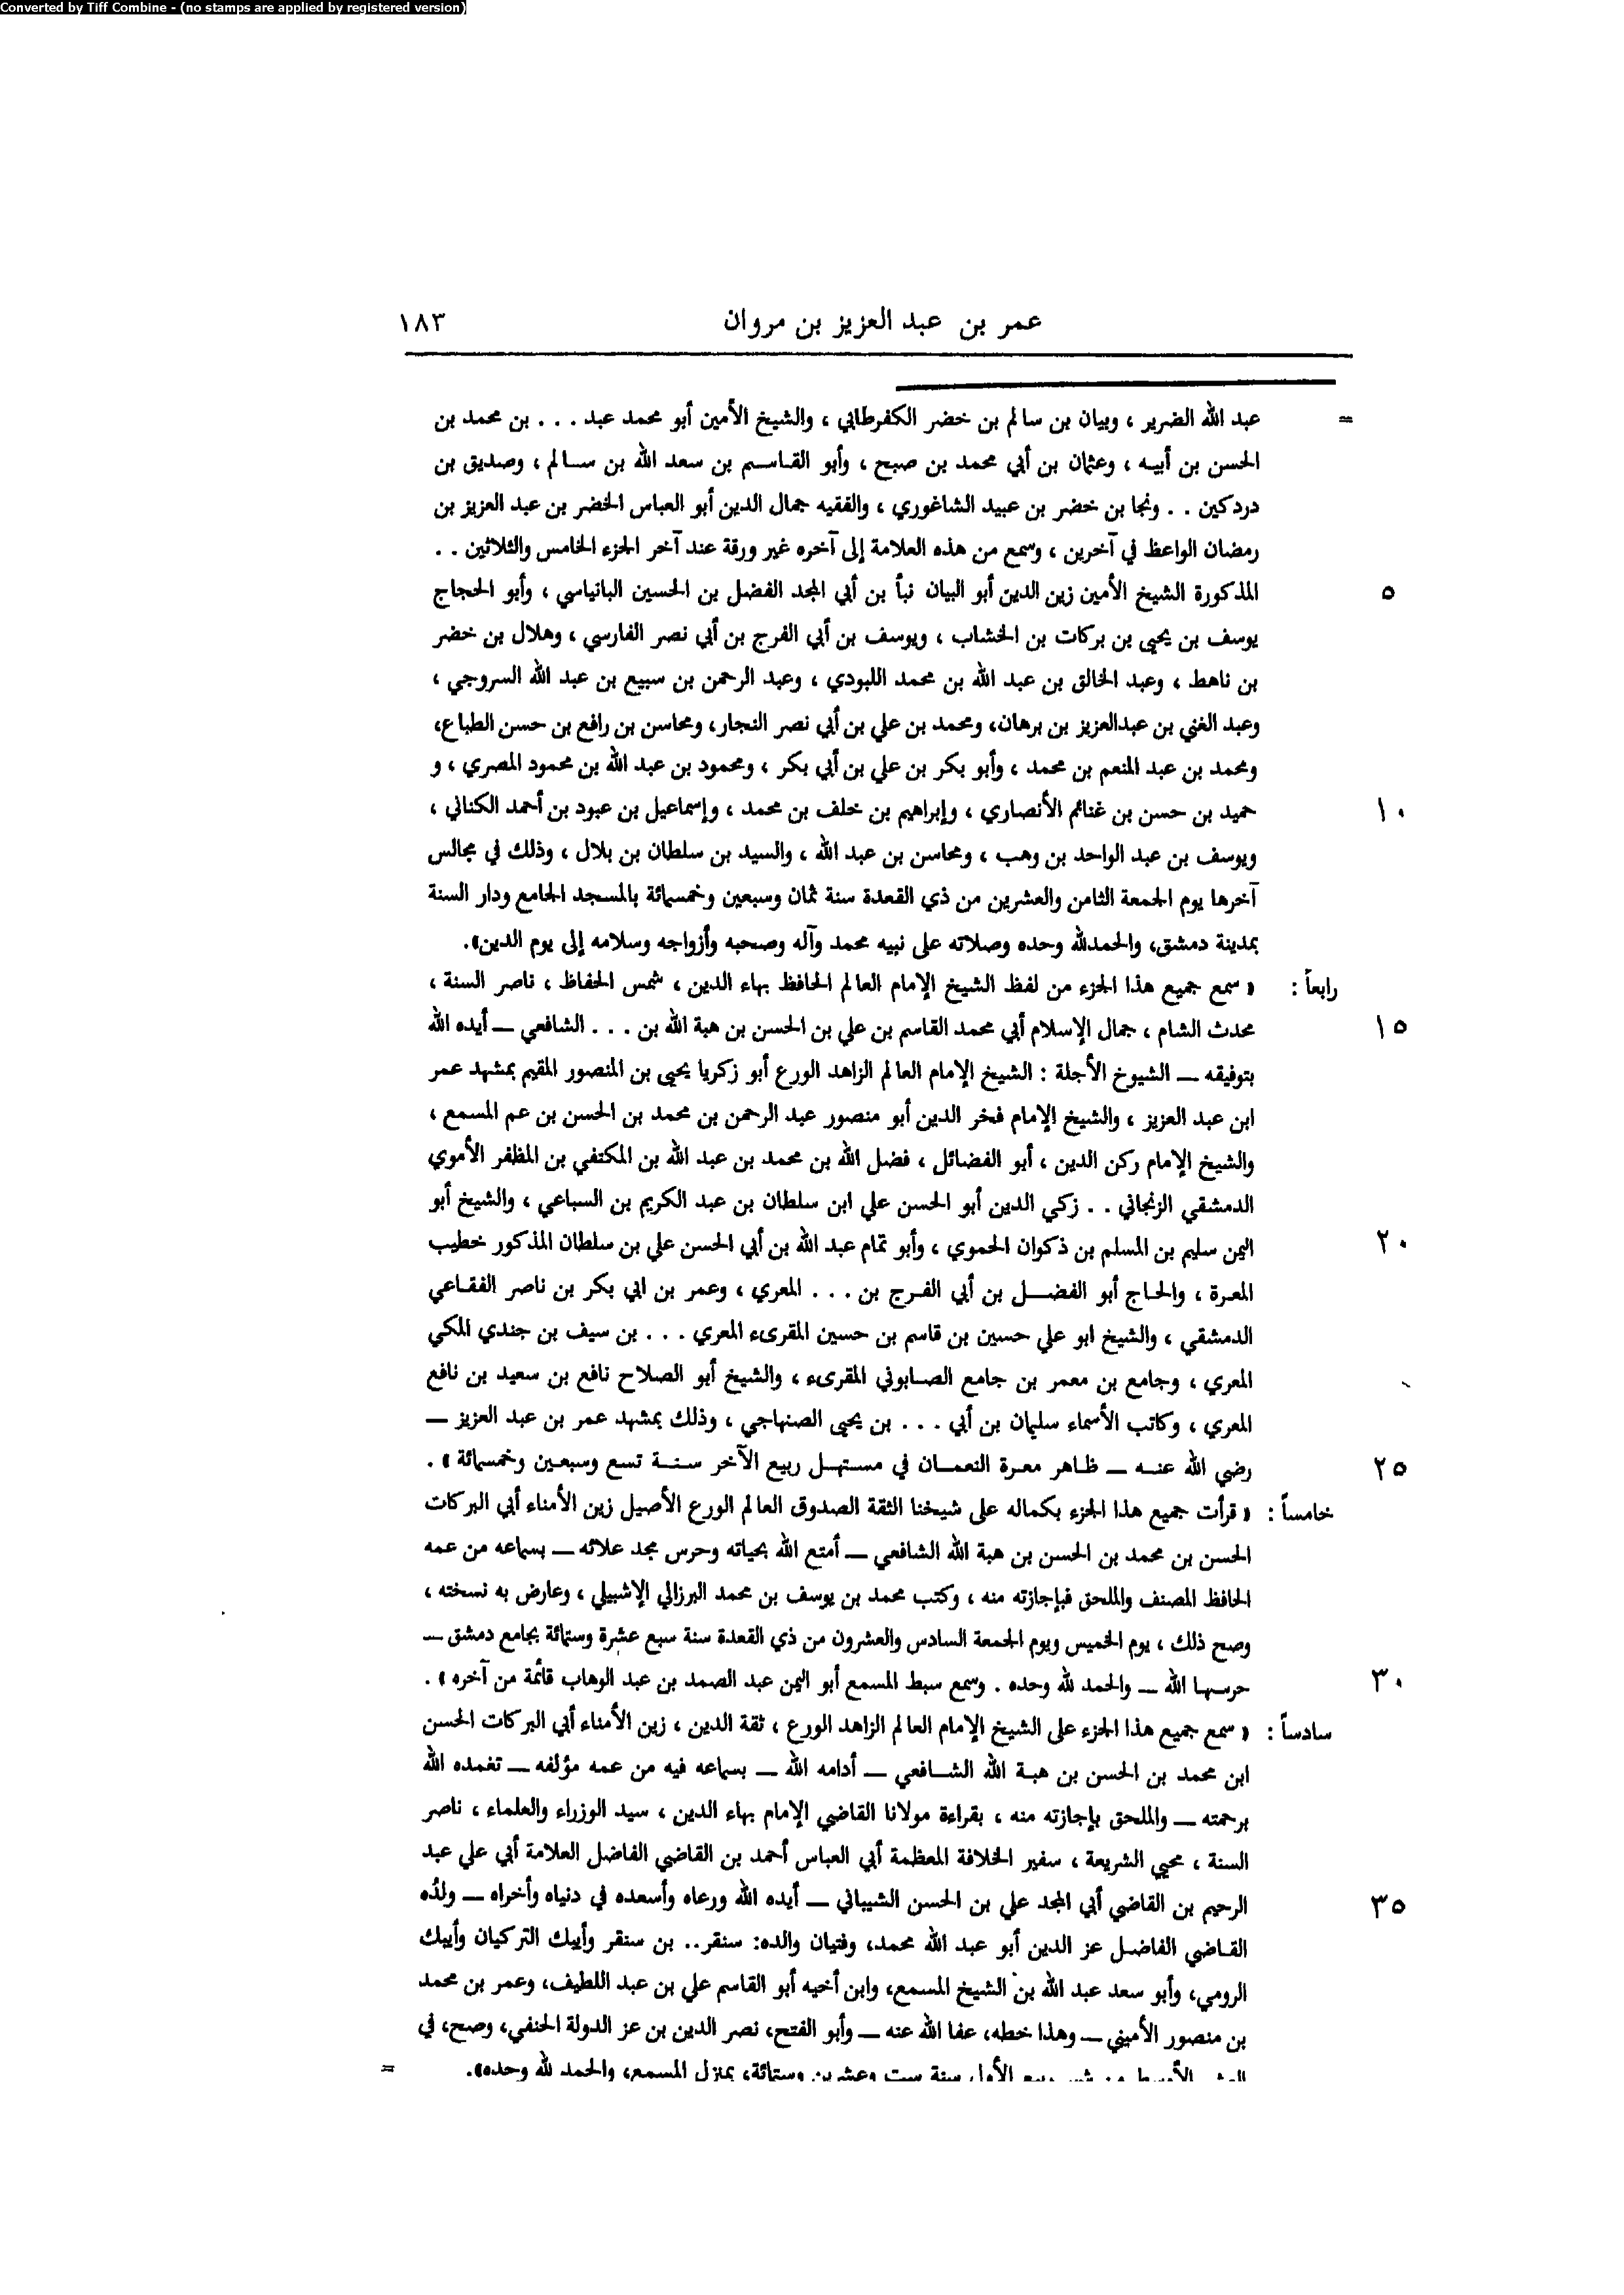 Converted by Tiff Combine - (no stamps are applied by registered version)
عمر بن عبد العزيز بن مروان ١٨٣
= عبد الله الضرير ، وبيان بن سالم بن خضر الكفرطابي ، والشيخ الأمين أبو محمد عبد . . . بن محمد بن
الحسن بن أبيه ، وعثمان بن أبي محمد بن صبح ، وأبو القاسم بن سعد الله بن سالم ، وصديق بن
دردكين . . ونجا بن خضر بن عبيد الشاغوري ، والفقيه جمال الدين أبو العباس الخضر بن عبد العزيز بن
رمضان الواعظ في آخرين ، وسمع من هذه العلامة إلى آخره غير ورقة عند آخر الجزء الخامس والثلاثين . .
المذكورة الشيخ الأمين زين الدين أبو البيان نبأ بن أبي المجد الفضل بن الحسين البانياسي ، وأبو الحجاج ٥
يوسف بن يحيى بن بركات بن الخشاب ، ويوسف بن أبي الفرج بن أبي نصر الفارسي ، وهلال بن خضر
بن ناهط ، وعبد الخالق بن عبد الله بن محمد اللبودي ، وعبد الرحمن بن سبيع بن عبد الله السروجي ،
وعبد الغني بن عبدالعزيز بن برهان، ومحمد بن علي بن أبي نصر النجار، ومحاسن بن رافع بن حسن الطباع،
ومحمد بن عبد المنعم بن محمد ، وأبو بكر بن علي بن أبي بكر ، ومحمود بن عبد الله بن محمود المصري ، و
حميد بن حسن بن غنائم الأنصاري ، وإبراهيم بن خلف بن محمد ، وإسماعيل بن عبود بن أحمد الكناني ، ١٠
ويوسف بن عبد الواحد بن وهب ، ومحاسن بن عبد الله ، والسيد بن سلطان بن بلال ، وذلك في مجالس
آخرها يوم الجمعة الثامن والعشرين من ذي القعدة سنة ثمان وسبعين وخمسمائة بالمسجد الجامع ودار السنة
بمدينة دمشق، والحمدلله وحده وصلاته على نبيه محمد وآله وصحبه وأزواجه وسلامه إلى يوم الدين».
رابعاً : « سمع جميع هذا الجزء من لفظ الشيخ الإمام العالم الحافظ بهاء الدين ، شمس الحفاظ ، ناصر السنة ،
محدث الشام ، جمال الإسلام أبي محمد القاسم بن علي بن الحسن بن هبة الله بن . . . الشافعي ـ أيده الله ١٥
بتوفيقه ـ الشيوخ الأجلة : الشيخ الإمام العالم الزاهد الورع أبو زكريا يحيى بن المنصور المقيم بمشهد عمر
ابن عبد العزيز ، والشيخ الإمام فخر الدين أبو منصور عبد الرحمن بن محمد بن الحسن بن عم المسمع ،
والشيخ الإمام ركن الدين ، أبو الفضائل ، فضل الله بن محمد بن عبد الله بن المكتفي بن المظفر الأموي
الدمشقي الزنجاني . . زكي الدين أبو الحسن علي ابن سلطان بن عبد الكريم بن السباعي ، والشيخ أبو
اليمن سليم بن المسلم بن ذكوان الحموي ، وأبو تمام عبد الله بن أبي الحسن علي بن سلطان المذكور خطيب ٢٠
المعرة ، والحاج أبو الفضل بن أبي الفرج بن . . . المعري ، وعمر بن ابي بكر بن ناصر الفقاعي
الدمشقي ، والشيخ ابو علي حسين بن قاسم بن حسين المقرىء المعري . . . بن سيف بن جندي المكي
المعري ، وجامع بن معمر بن جامع الصابوني المقرىء ، والشيخ أبو الصلاح نافع بن سعيد بن نافع
المعري ، وكاتب الأسماء سليمان بن أبي . . . بن يحيى الصنهاجي ، وذلك بمشهد عمر بن عبد العزيز ـ
رضي الله عنه ـ ظاهر معرة النعمان في مستهل ربيع الآخر سنة تسع وسبعين وخمسمائة » . ٢٥
خامساً : « قرأت جميع هذا الجزء بكماله على شيخنا الثقة الصدوق العالم الورع الأصيل زين الأمناء أبي البركات
الحسن بن محمد بن الحسن بن هبة الله الشافعي ـ أمتع الله بحياته وحرس مجد علائه ـ بسماعه من عمه
الحافظ المصنف والملحق فبإجازته منه ، وكتب محمد بن يوسف بن محمد البرزالي الإشبيلي ، وعارض به نسخته ،
وصح ذلك ، يوم الخميس ويوم الجمعة السادس والعشرون من ذي القعدة سنة سبع عشرة وستمائة بجامع دمشق ـ
حرسها الله ـ والحمد لله وحده . وسمع سبط المسمع أبو اليمن عبد الصمد بن عبد الوهاب قائمة من آخره » . ٣٠
سادساً : « سمع جميع هذا الجزء على الشيخ الإمام العالم الزاهد الورع ، ثقة الدين ، زين الأمناء أبي البركات الحسن
ابن محمد بن الحسن بن هبة الله الشافعي ـ أدامه الله ـ بسماعه فيه من عمه مؤلفه ـ تغمده الله
برحمته ـ والملحق بإجازته منه ، بقراءة مولانا القاضي الإمام بهاء الدين ، سيد الوزراء والعلماء ، ناصر
السنة ، محيي الشريعة ، سفير الخلافة المعظمة أبي العباس أحمد بن القاضي الفاضل العلامة أبي علي عبد
الرحيم بن القاضي أبي المجد علي بن الحسن الشيباني ـ أيده الله ورعاه وأسعده في دنياه وأخراه ـ ولدُه ٣٥
القاضي الفاضل عز الدين أبو عبد الله محمد، وفتيان والده: سنقر.. بن سنقر وأيبك التركيان وأيبك
الرومي، وأبو سعد عبد الله بن الشيخ المسمع، وابن أخيه أبو القاسم علي بن عبد اللطيف، وعمر بن محمد
بن منصور الأميني ـ وهذا خطه، عفا الله عنه ـ وأبو الفتح، نصر الدين بن عز الدولة الحنفي، وصح، في
العشر الأوسط من شهر ربيع الأول سنة ست وعشرين وستمائة، بمنزل المسمع، والحمد لله وحده». =